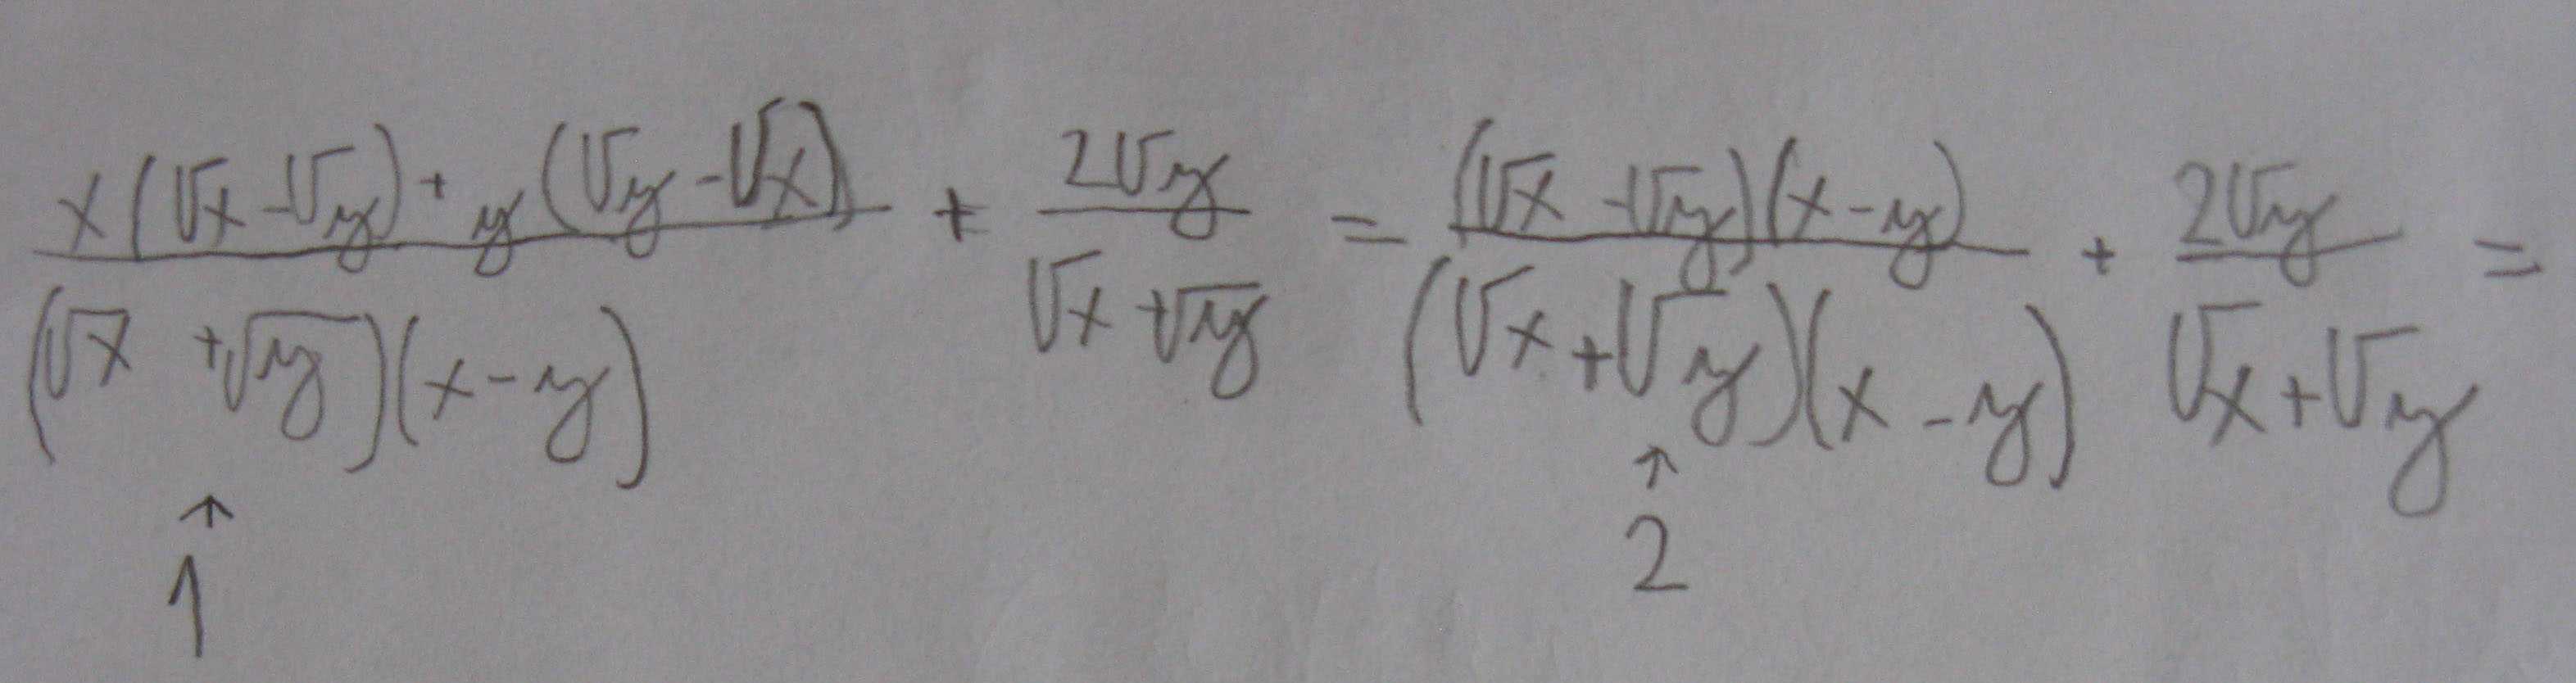 x(√x-√y)+y(√y-√x) / (√x+√y)(x-y) + 2√y / √x+√y = (√x-√y)(x-y) / (√x+√y)(x-y) + 2√y / √x+√y =
↑ ↑
1 2